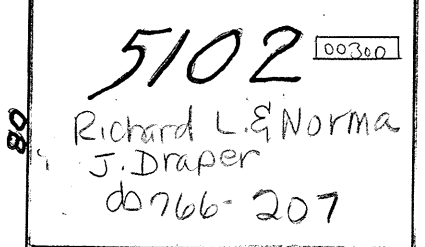 5102
00300
80
Richard L. & Norma
J. Draper
db 766-207